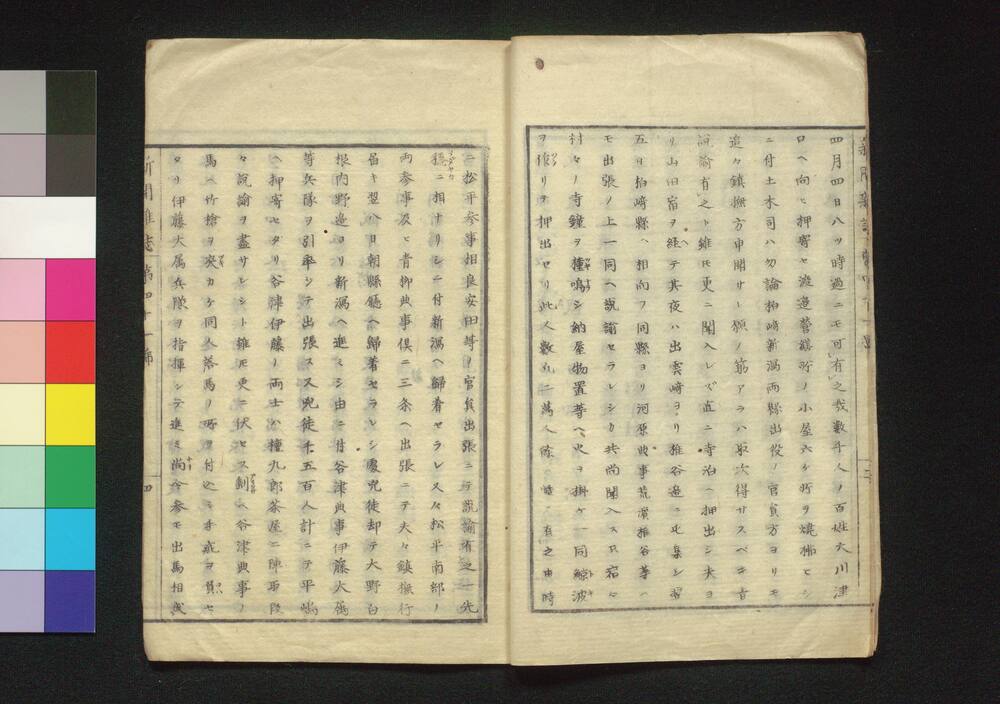 四月四日八ツ時過ニモ可有之哉數千人ノ百姓大川津
口ヘ向ヒ押寄セ渡邉營繕所ノ小屋六ケ所ヲ燒拂ヒシ
ニ付土木司ハ勿論柏﨑新潟兩縣出役ノ官員方ヨリモ
追々鎮撫方申聞サトシ願ノ筋アラハ取次得サスベキ旨
説諭有之ト雖モ更ニ聞入レズ直ニ寺泊ヘ押出シ夫ヨ
リ山田宿ヲ経テ其夜ハ出雲﨑ヨリ椎谷邉ニ屯集シ翌
五日柏﨑縣ヘ相向フ同縣ヨリ河原典事荒濱椎谷等ヘ
モ出張ノ上一同ヘ説諭セラレシカ共尚聞入ス只宿々
村々ノ寺鐘ヲ撞鳴シ納屋物置等ヘ火ヲ掛ケ一同鯨波
ヲ作リテ押出セリ此人數凡ニ萬人餘 時 有之由時
ニ松平参事相良安田等ノ官員出張ニテ説諭有之一先
穏ニ相ナリシニ付新潟ヘ歸着セラレ又々松平南部ノ
両参事及ヒ青柳典事倶ニ三条ヘ出張ニテ夫々鎮撫行
届キ翌八日朝縣廳ヘ歸着セラレシ處兇徒却テ大野白
根内野邉ヨリ新潟ヘ進ミシ由ニ付谷津典事伊藤大属
等兵隊ヲ引率シテ出張ス兇徒千五百人計ニテ平嶋
ヘ押寄セタリ谷津伊藤ノ両士ハ檀九郎茶屋ニ陣取段
々説諭ヲ盡サレシト雖モ更ニ伏セス剰ヘ谷津典事ノ
馬ヘ竹槍ヲ突カケ同人落馬ノ所ヲ付込ミ手疵ヲ負セ
タリ伊藤大属兵隊ヲ指揮シテ進ミ尚令参モ出馬相成
新聞雜誌 第四十一號 四